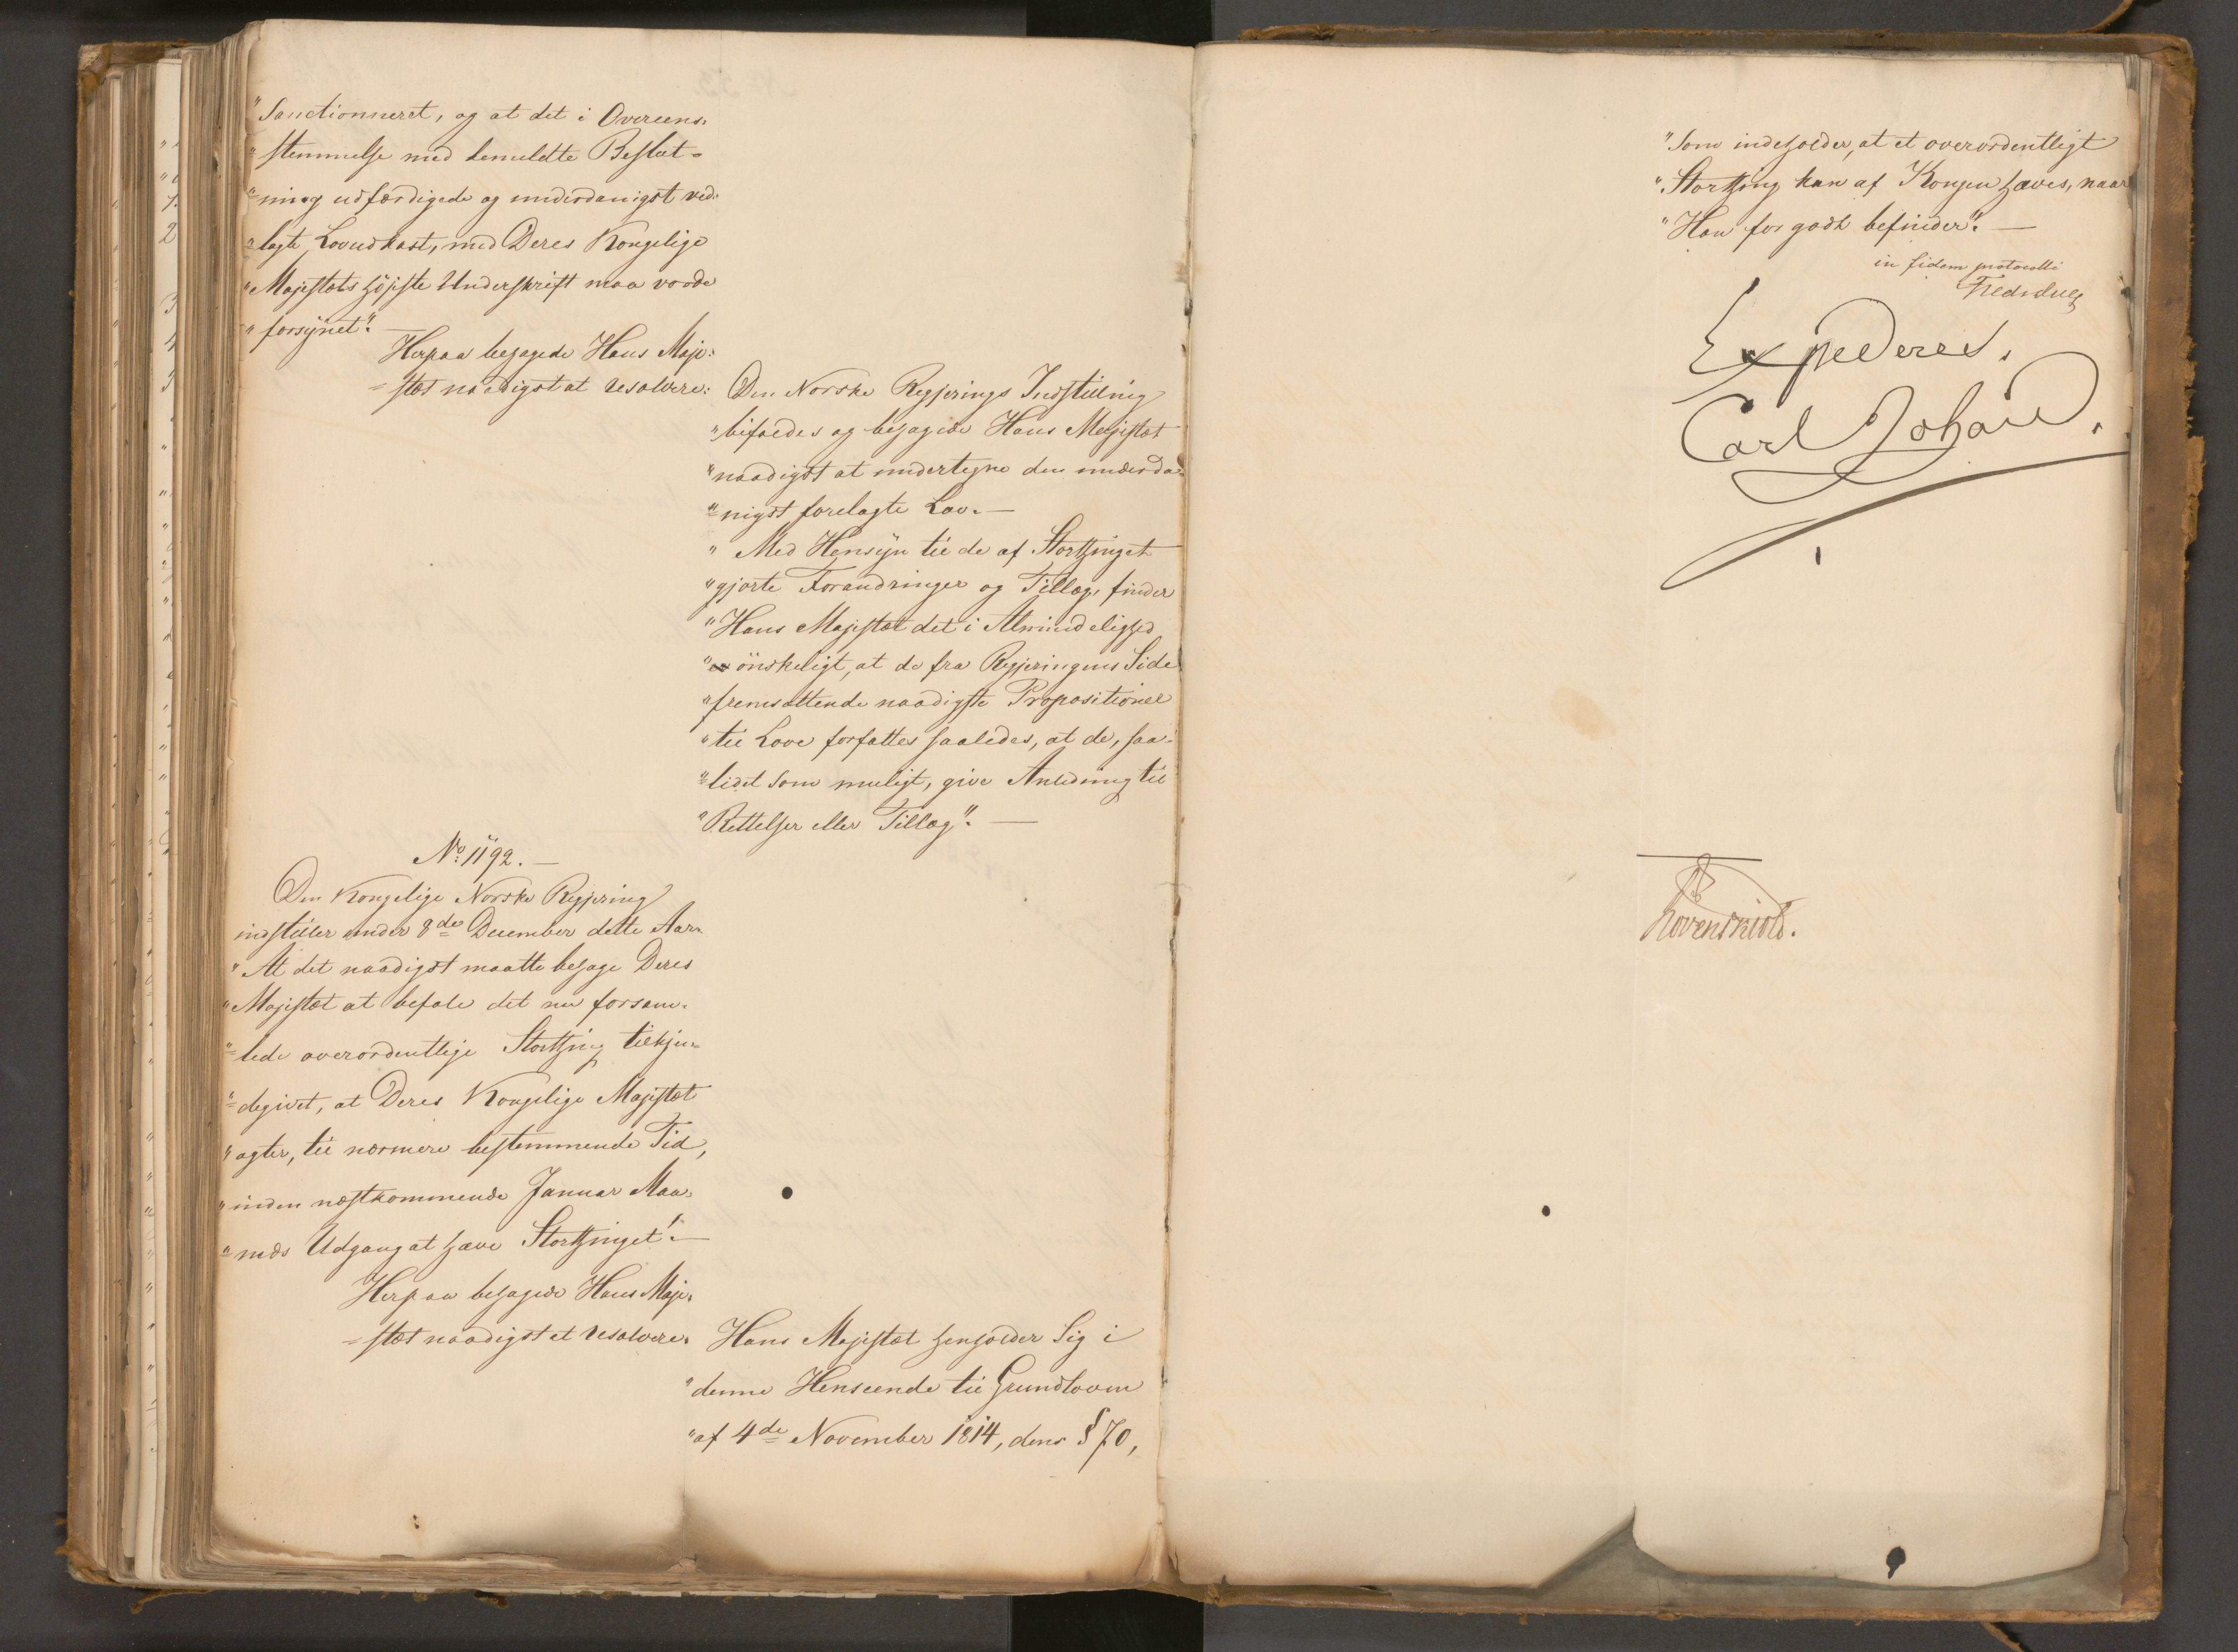 "Sanctionneret, og at det i Overeens-
"stemmelse med bemeldte Beslut-
"ning udfærdigede og underdanigst ved-
"lagte Lovudkast, med Deres Kongelige
"Majestæts höjeste Underskrift maa vorde
"forsynet".
Herpaa behagede Hans Maje-
stæt naadigst at resolvere:
Den Norske Regjerings Indstilling
"bifaldes og behagede Hans Majestæt
"naadigst at undertegne den underda-
"nigst forelagte Lov. —
" Med Hensÿn til de af Storthinget
"gjorte Forandringer og Tillæg, finder
"Hans Majestæt det i Almindelighed
"önskeligt, at de fra Regjeringens Side
"fremsættende naadigste Propositioner
"til Love forfattes saaledes, at de, saa-
"lidet som muligt, give Anledning til
"Rettelser eller Tillæg". —
No. 1192. —
Den Kongelige Norske Regjering
indstiller under 8de December dette Aar:
"At det naadigst maatte behage Deres
"Majestæt at befale det nu forsam-
"lede overordentlige Storthing tilkjen-
"degivet, at Deres Kongelige Majestæt
"agter, til nærmere bestemmende Tid,
"inden næstkommende Januar Maa-
"neds Udgang at hæve Storthinget". —
Herpaa behagede Hans Maje-
stæt naadigst at resolvere:
Hans Majestæt henholder Sig i
"denne Henseende til Grundloven
"af 4de November 1814, dens § 70,
"Som indeholder, at et overordentligt
"Storthing kan af Kongen hæves, naar
"Han for godt befinder". —
in fidem protocolli
Expederes.
Carl Johan.
Løvenskiold.